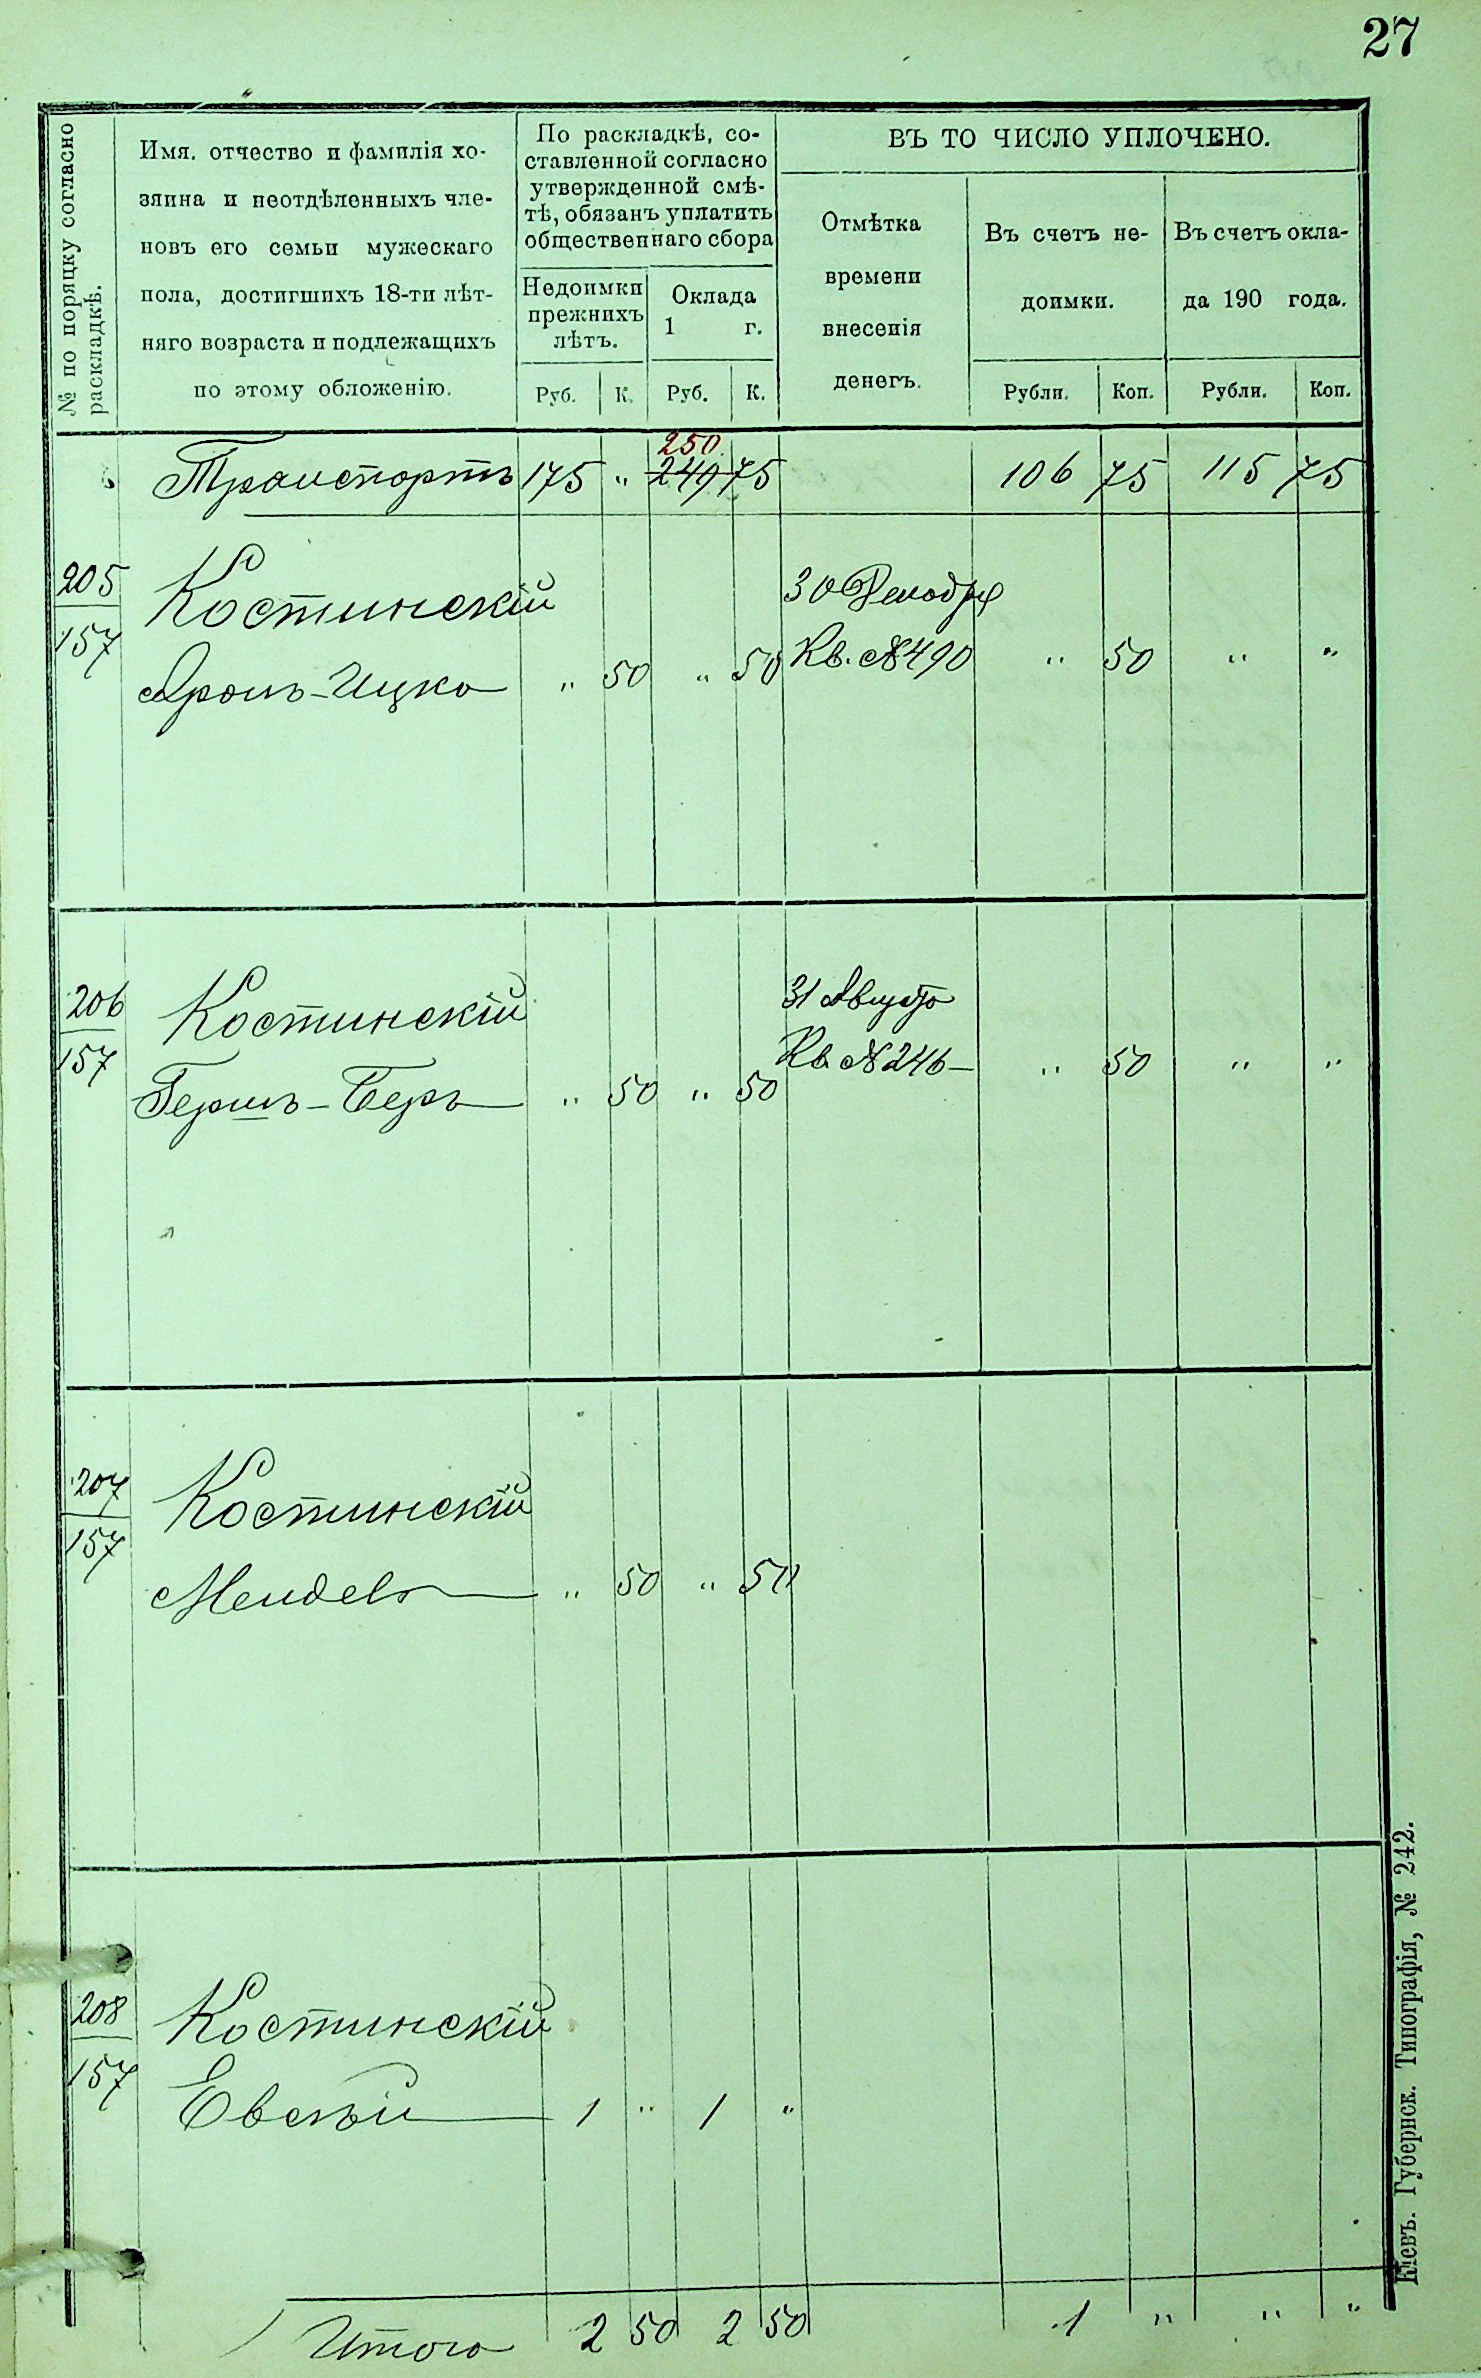 27
№ по поряцку согласно
раскладкѣ.
Имя. отчество и фамилія хо-
зяина и неотдѣленныхъ чле-
новъ его семьи мужескаго
пола, достигшихъ 18-ти лѣт-
няго возраста и подлежащихъ
по этому обложенію.
По раскладкѣ, со-
ставленной согласно
утвержденной смѣ-
тѣ, обязанъ уплатить
общественнаго сбора
Недоимки
прежнихъ
лѣтъ.
Оклада
1 г.
Руб. К. Руб. К.
ВЪ ТО ЧИСЛО УПЛОЧЕНО.
Отмѣтка
времени
внесенія
денегъ.
Въ счетъ не-
доимки.
Въ счетъ окла-
да 190 года.
Рубли. Коп. Рубли. Коп.
250
Транспортъ 175 " 249 75 106 75 115 75
205 Костинскій 30 Декабря
157 Аронъ-Ицко " 50 " 50 Кв. № 490 " 50 " "
206 Костинскій 31 Августа
157 Гершъ-Беръ " 50 " 50 Кв. № 246 " 50 " "
207 Костинскій
157 Mendelъ " 50 " 50
208 Костинскій
157 Евсѣй 1 " 1 "
Итого 2 50 2 50 1 " " "
Кіевъ. Губернск. Типографія, № 242.